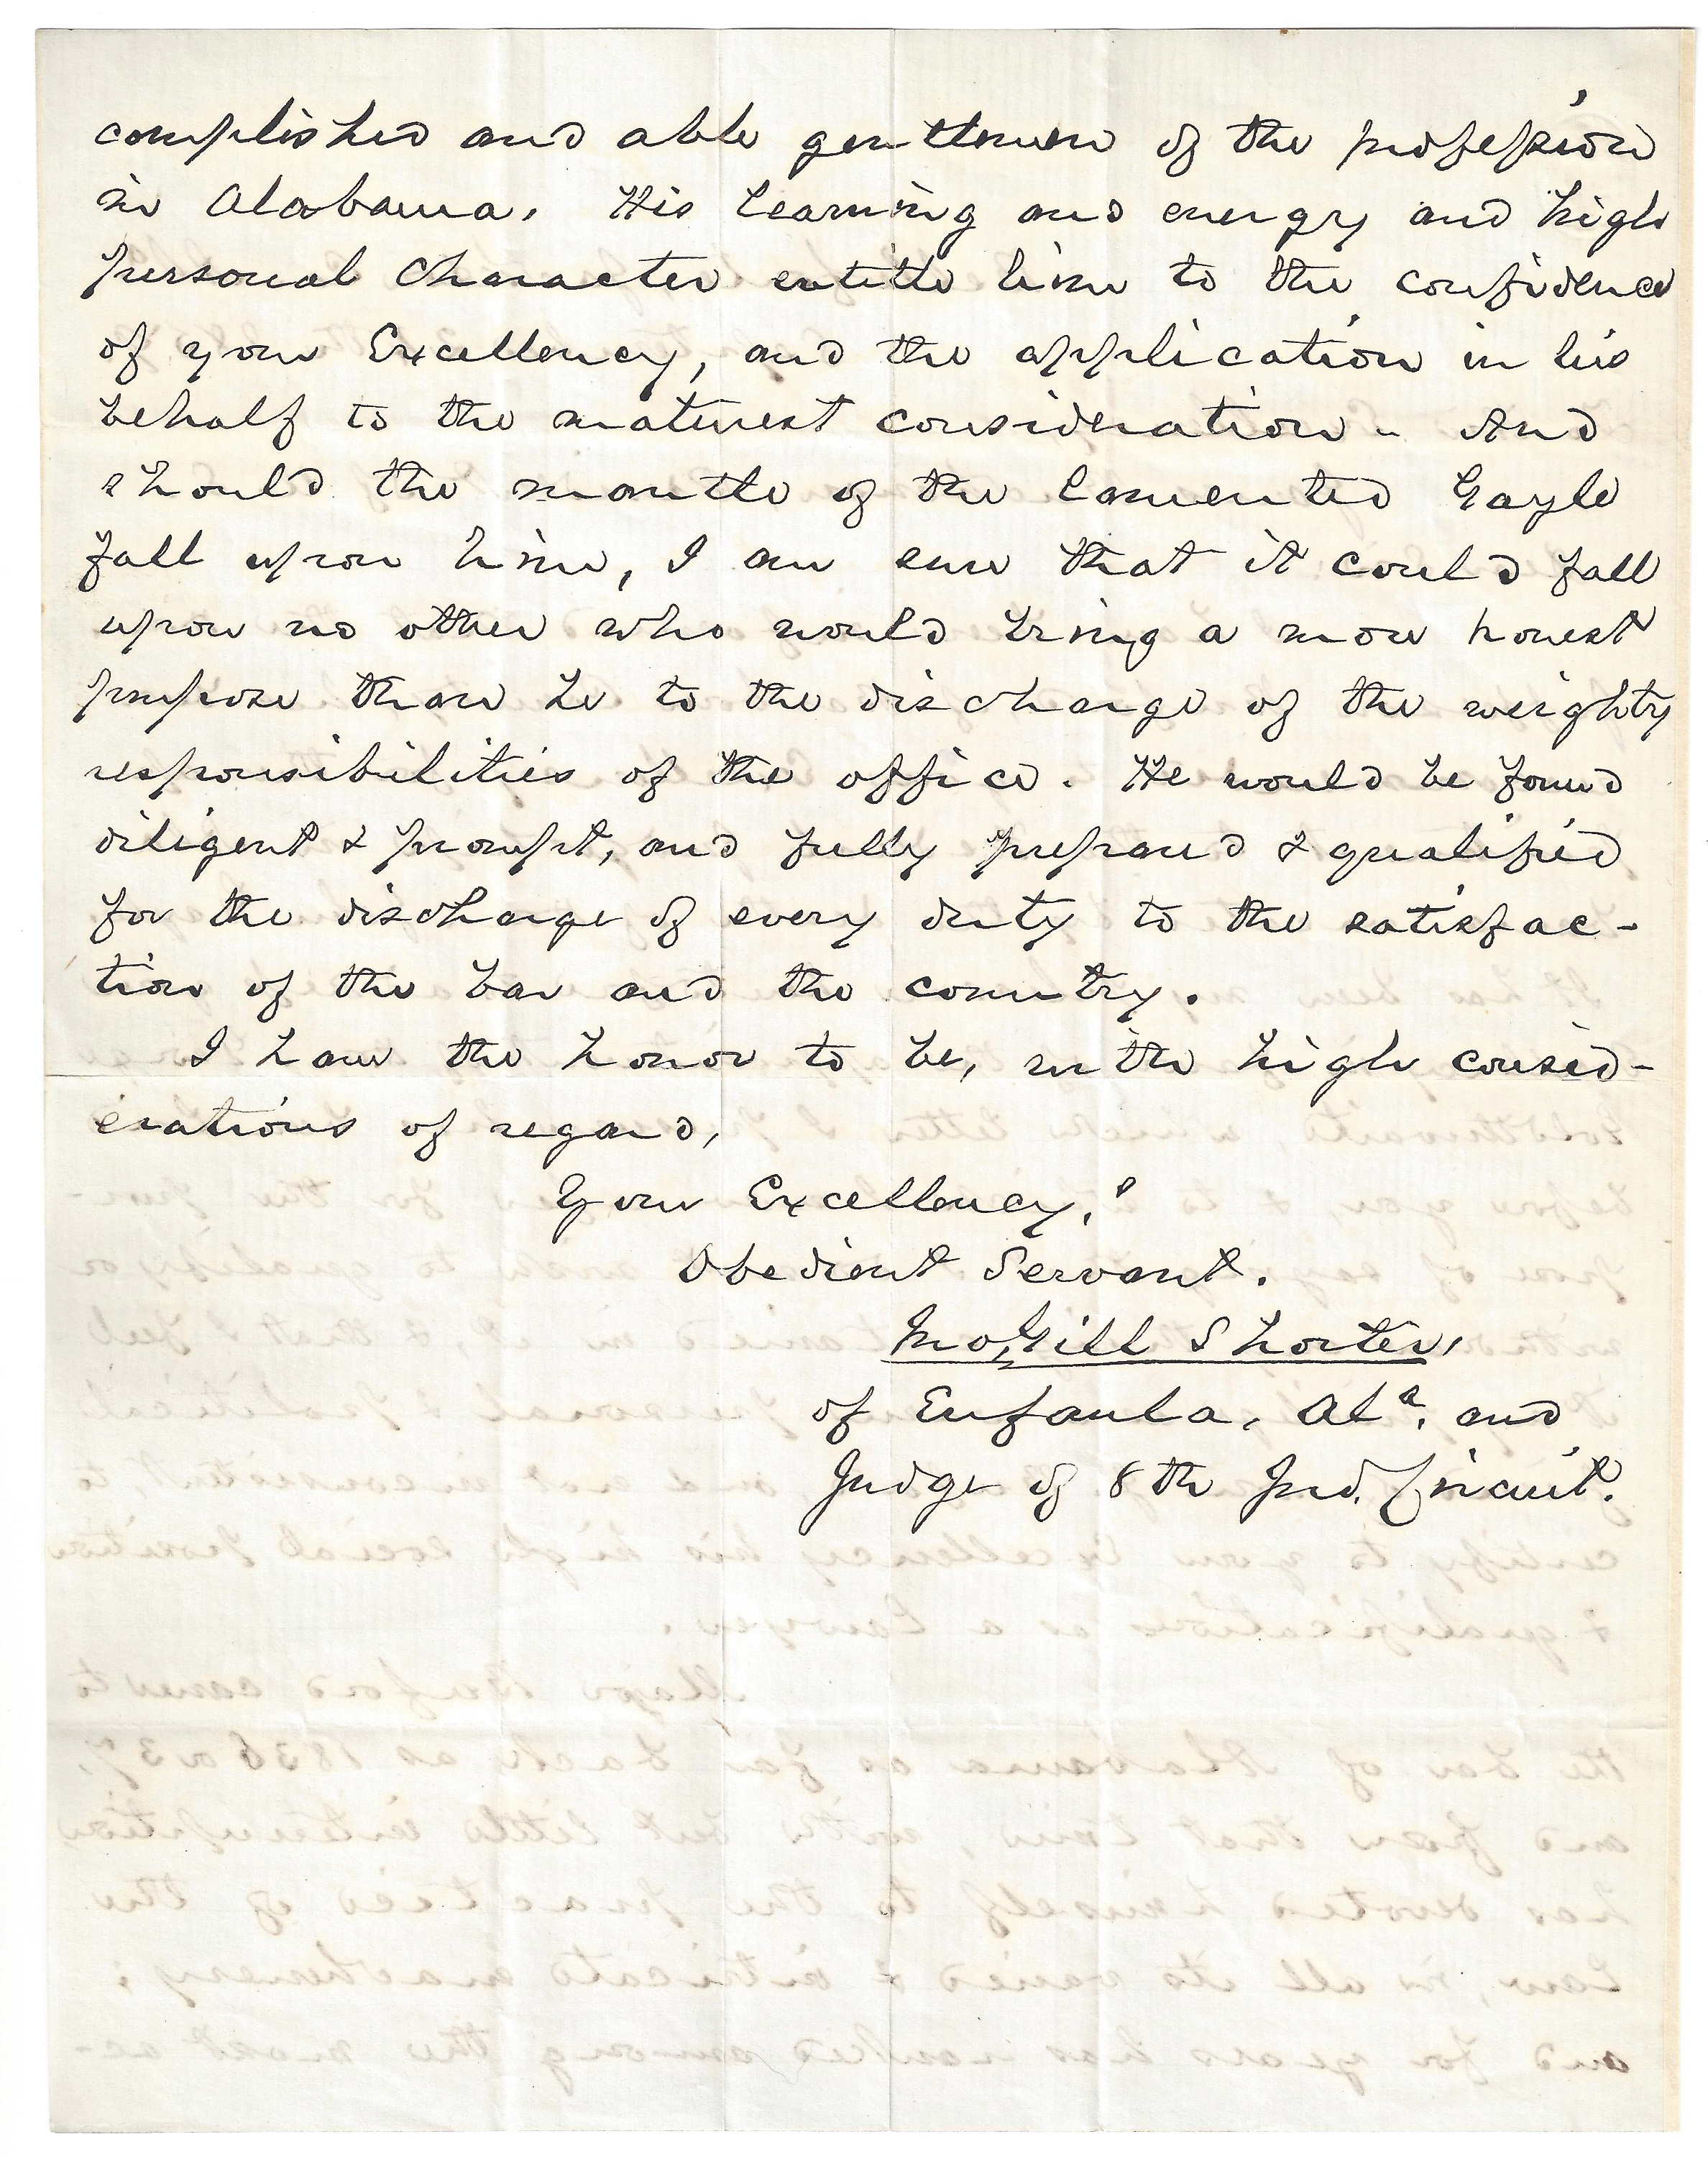 complished and able gentlemen of the profession
in Alabama. His learning and energy and high
personal character entitle him to the confidence
of your Excellency, and the application in his
behalf to the maturest consideration - And
should the mantle of the lamented Gayle
fall upon him, I am sure that it could fall
upon no other who would bring a more honest
purpose than he to the discharge of the weighty
responsibilities of the office. He would be found
diligent & prompt, and fully prepared & qualified
for the discharge of every duty to the satisfac-
tion of the bar and the country.
I have the honor to be, with high consid-
erations of regard,
Your Excellency's
Obedient Servant.
Jno. Gill Shorter,
of Eufaula, Ala. and
Judge of 8th Jud. Circuit.